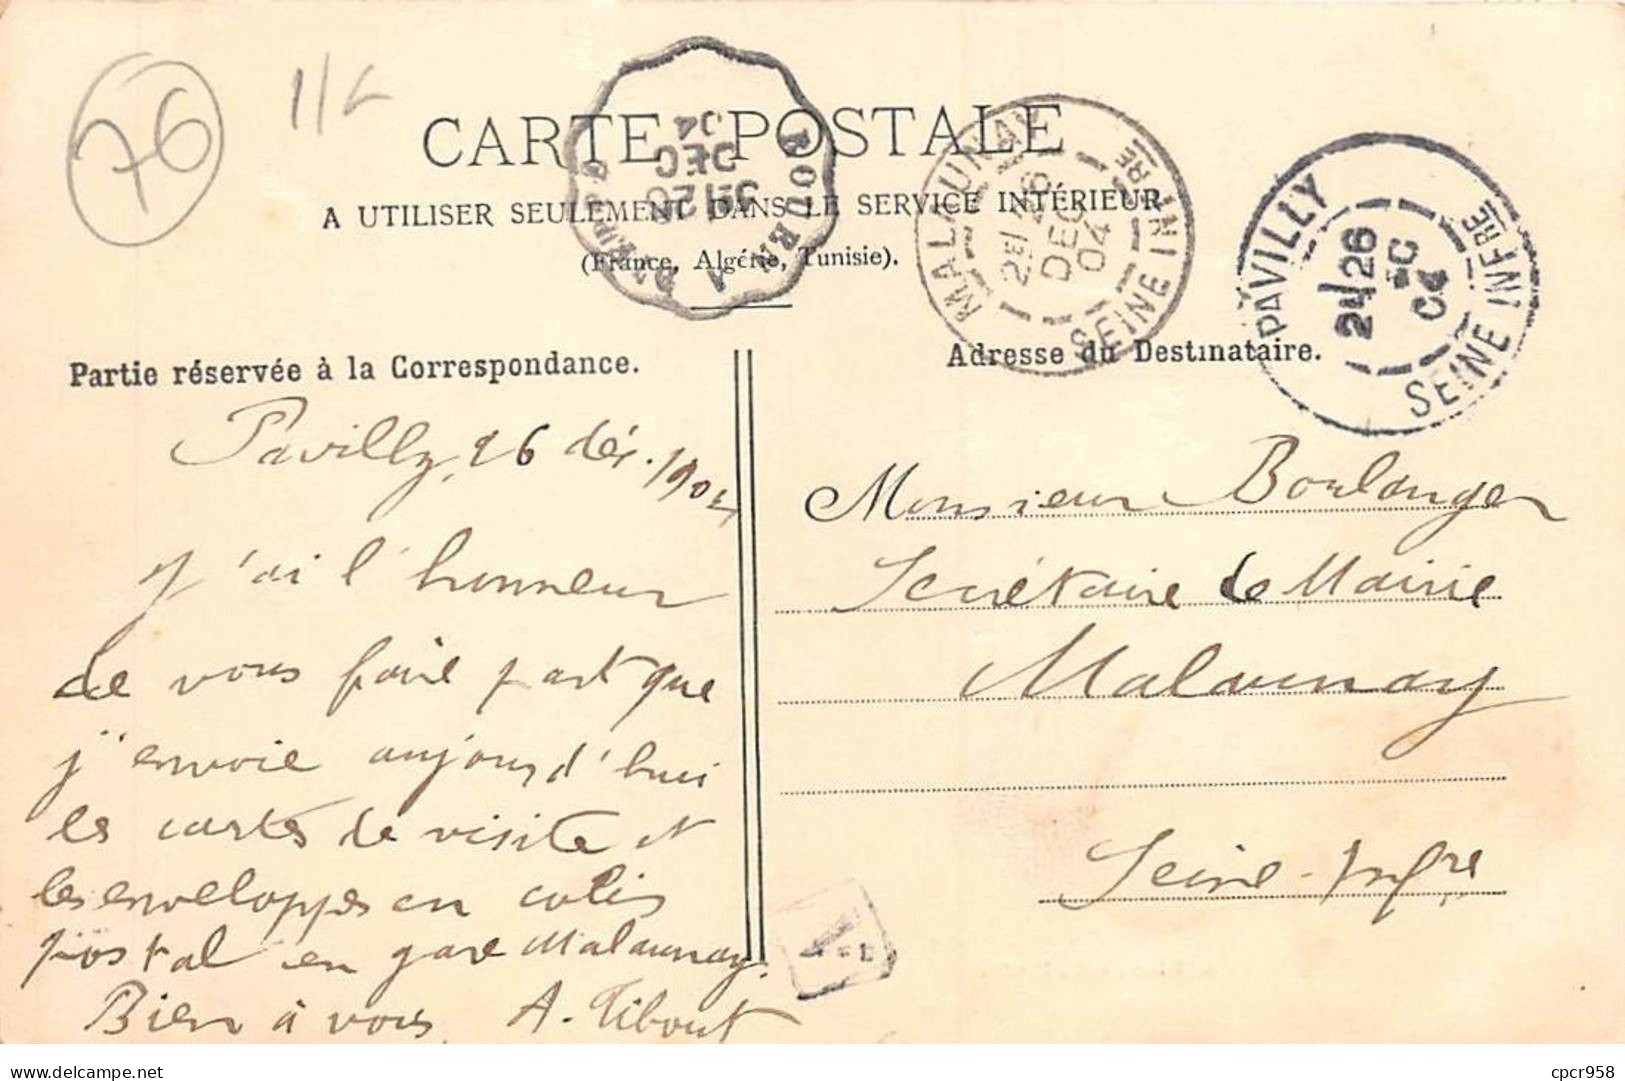 76
CARTE POSTALE
A UTILISER SEULEMENT DANS LE SERVICE INTÉRIEUR
(France, Algérie, Tunisie).
MALAUNAY
26
DEC
04
SEINE INFRE
PAVILLY
26
04
SEINE INFRE
ROUEN A
26
DEC
04
Partie réservée à la Correspondance.
Pavilly, 26 déc. 1904
J'ai l'honneur
de vous faire part que
j'envoie aujourd'hui
les cartes de visite et
les enveloppes en colis
postal en gare Malaunay.
Bien à vous, A. Tibout
Adresse du Destinataire.
Monsieur Boulanger
Secrétaire de Mairie
Malaunay
Seine-Infre
cpcr958